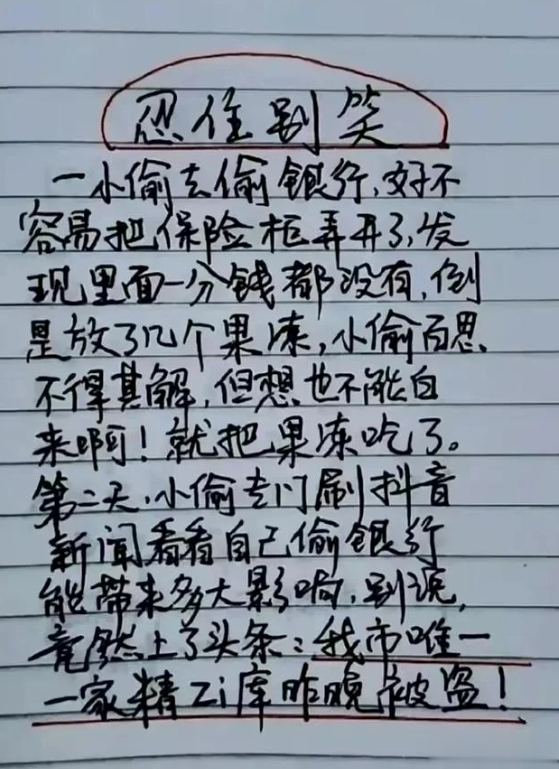 忍住别笑
一小偷去偷银行,好不
容易把保险柜弄开了,发
现里面一分钱都没有,倒
是放了几个果冻,小偷百思
不得其解,但想也不能白
来啊!就把果冻吃了。
第二天,小偷专门刷抖音
新闻看看自己偷银行
能带来多大影响,别说,
竟然上了头条:我市唯一
一家精Zi库昨晚被盗!